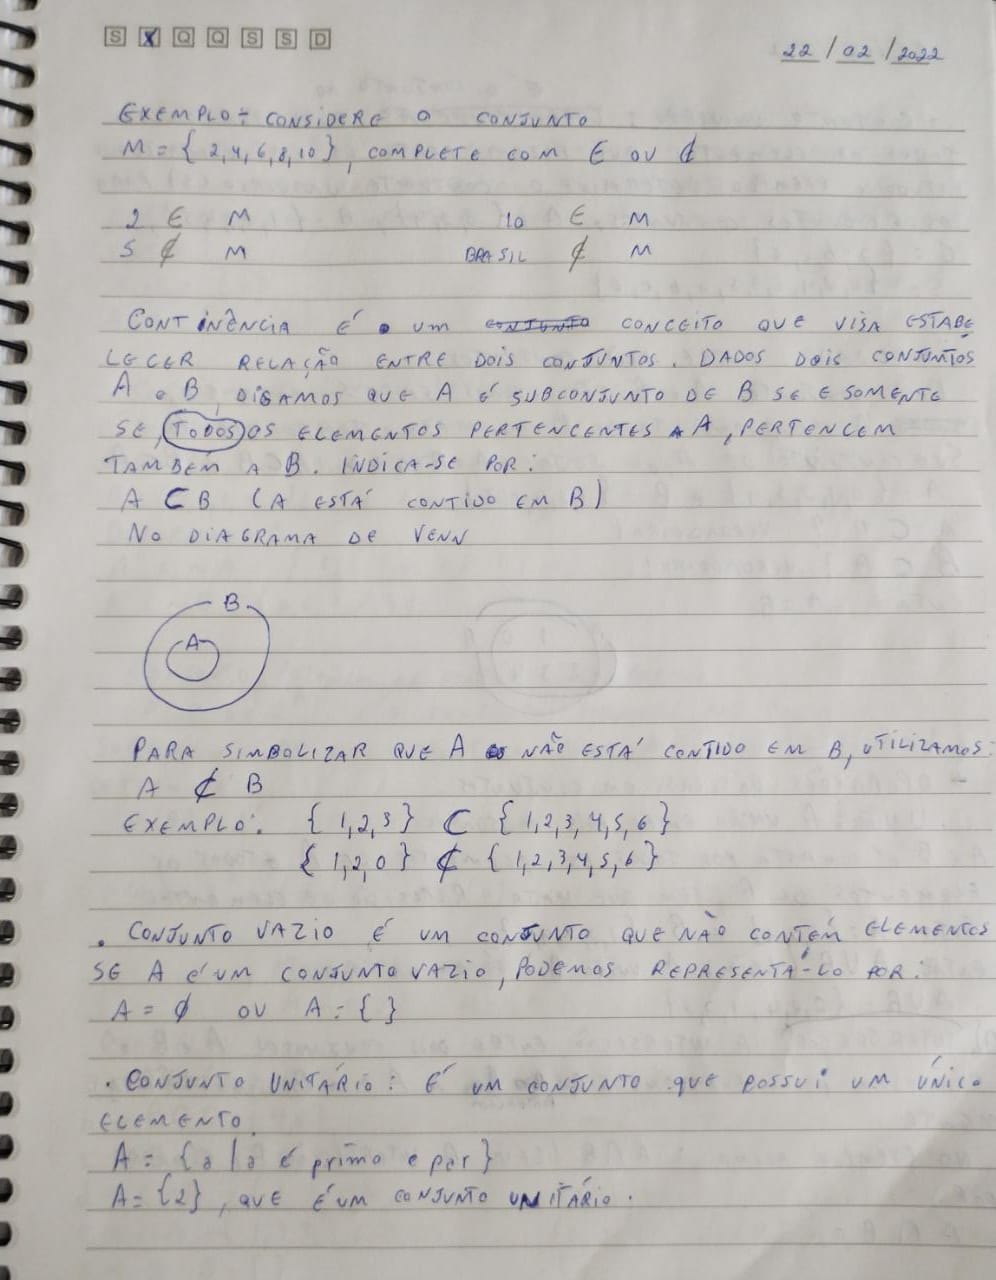 S X Q Q S S D
22/02/2022
EXEMPLO: CONSIDERE O CONJUNTO
M = { 2,4,6,8,10 }, COMPLETE COM ∈ OU ∉
2 ∈ M 10 ∈ M
5 ∉ M BRASIL ∉ M
CONTINÊNCIA É UM CONJUNTO CONCEITO QUE VISA ESTABE
LECER RELAÇÃO ENTRE DOIS CONJUNTOS. DADOS DOIS CONJUNTOS
A e B, DIGAMOS QUE A É SUBCONJUNTO DE B SE E SOMENTE
SE, TODOS OS ELEMENTOS PERTENCENTES A A, PERTENCEM
TAMBÉM A B. INDICA-SE POR:
A ⊂ B (A ESTÁ CONTIDO EM B)
NO DIAGRAMA DE VENN
B
A
PARA SIMBOLIZAR QUE A NÃO ESTÁ CONTIDO EM B, UTILIZAMOS:
A ⊄ B
EXEMPLO: { 1,2,3 } ⊂ { 1,2,3,4,5,6 }
{ 1,2,0 } ⊄ { 1,2,3,4,5,6 }
. CONJUNTO VAZIO É UM CONJUNTO QUE NÃO CONTÉM ELEMENTOS
SE A É UM CONJUNTO VAZIO, PODEMOS REPRESENTÁ-LO POR:
A = ∅ OU A = { }
. CONJUNTO UNITÁRIO: É UM CONJUNTO QUE POSSUI UM ÚNICO
ELEMENTO.
A = {a / a é primo e par}
A = {2}, QUE É UM CONJUNTO UNITÁRIO.